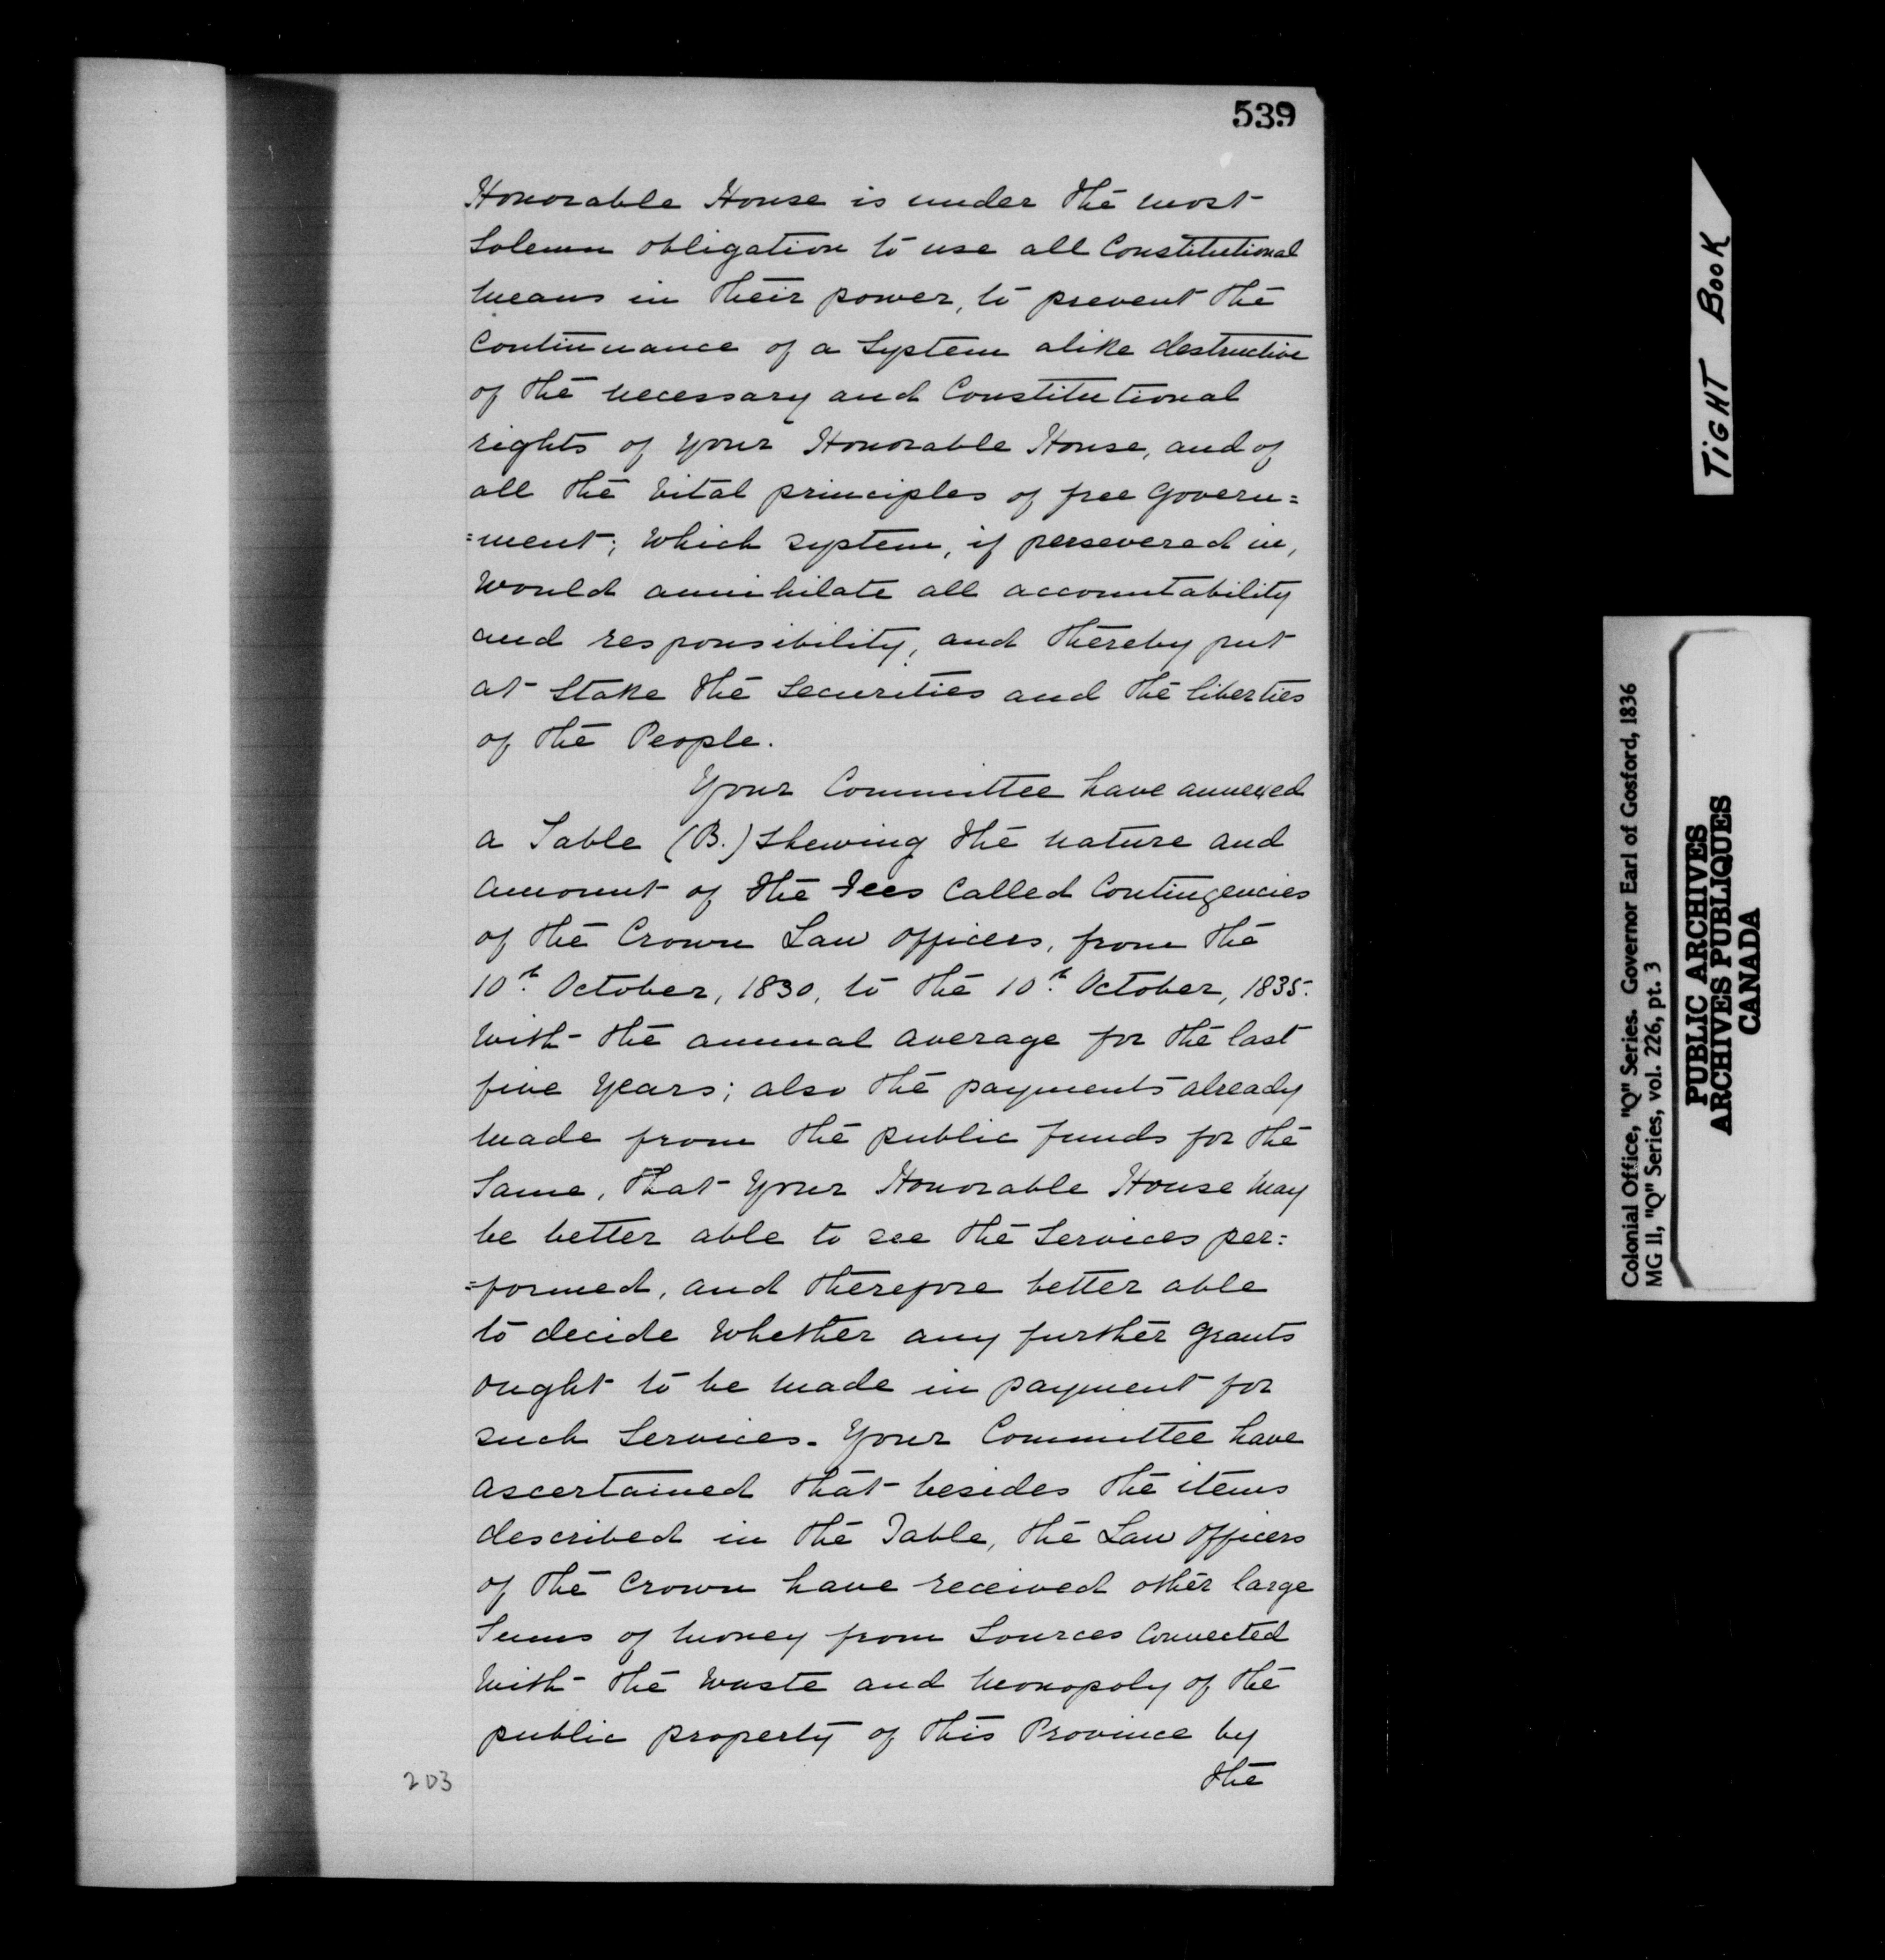 539
Honorable House is under the most
Solemn obligation to use all Constitutional
means in their power, to prevent the
Continuance of a System alike destructive
of the necessary and Constitutional
rights of your Honorable House, and of
all the vital principles of free Govern=
=ment; which system, if persevered in,
would annihilate all accountability
and responsibility, and thereby put
at Stake the Securities and the liberties
of the People.
Your Committee have annexed
a Table (B.) shewing the nature and
Amount of the Fees called Contingencies
of the Crown Law officers, from the
10th October, 1830, to the 10th October, 1835.
With the annual average for the last
five Years; also the payments already
made from the public funds for the
Same, that Your Honorable House may
be better able to see the Services per=
=formed, and therefore better able
to decide whether any further grants
ought to be made in payment for
such Services. Your Committee have
ascertained that besides the items
described in the Table, the Law Officers
of the Crown have received other large
Sums of money from Sources Connected
with the waste and monopoly of the
public property of this Province by
the
203
TIGHT BOOK
Colonial Office, "Q" Series. Governor Earl of Gosford, 1836
MG 11, "Q" Series, vol. 226, pt. 3
PUBLIC ARCHIVES
ARCHIVES PUBLIQUES
CANADA